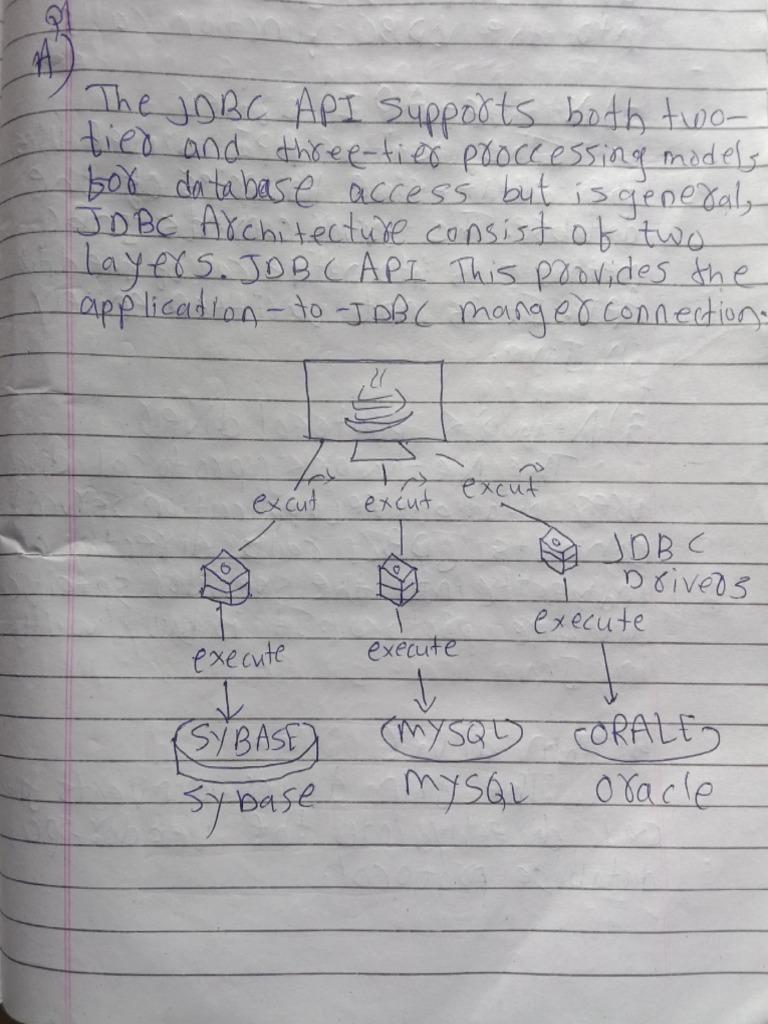 Q1
A)
The JDBC API Supports both two-
tier and three-tier proccessing models
for database access but is general,
JDBC Architecture consist of two
layers. JDBC API This provides the
application-to-JDBC manger connection.
excut excut excut
JDBC
Drivers
execute execute execute
SYBASE MYSQL ORALE
Sybase MYSQL oracle